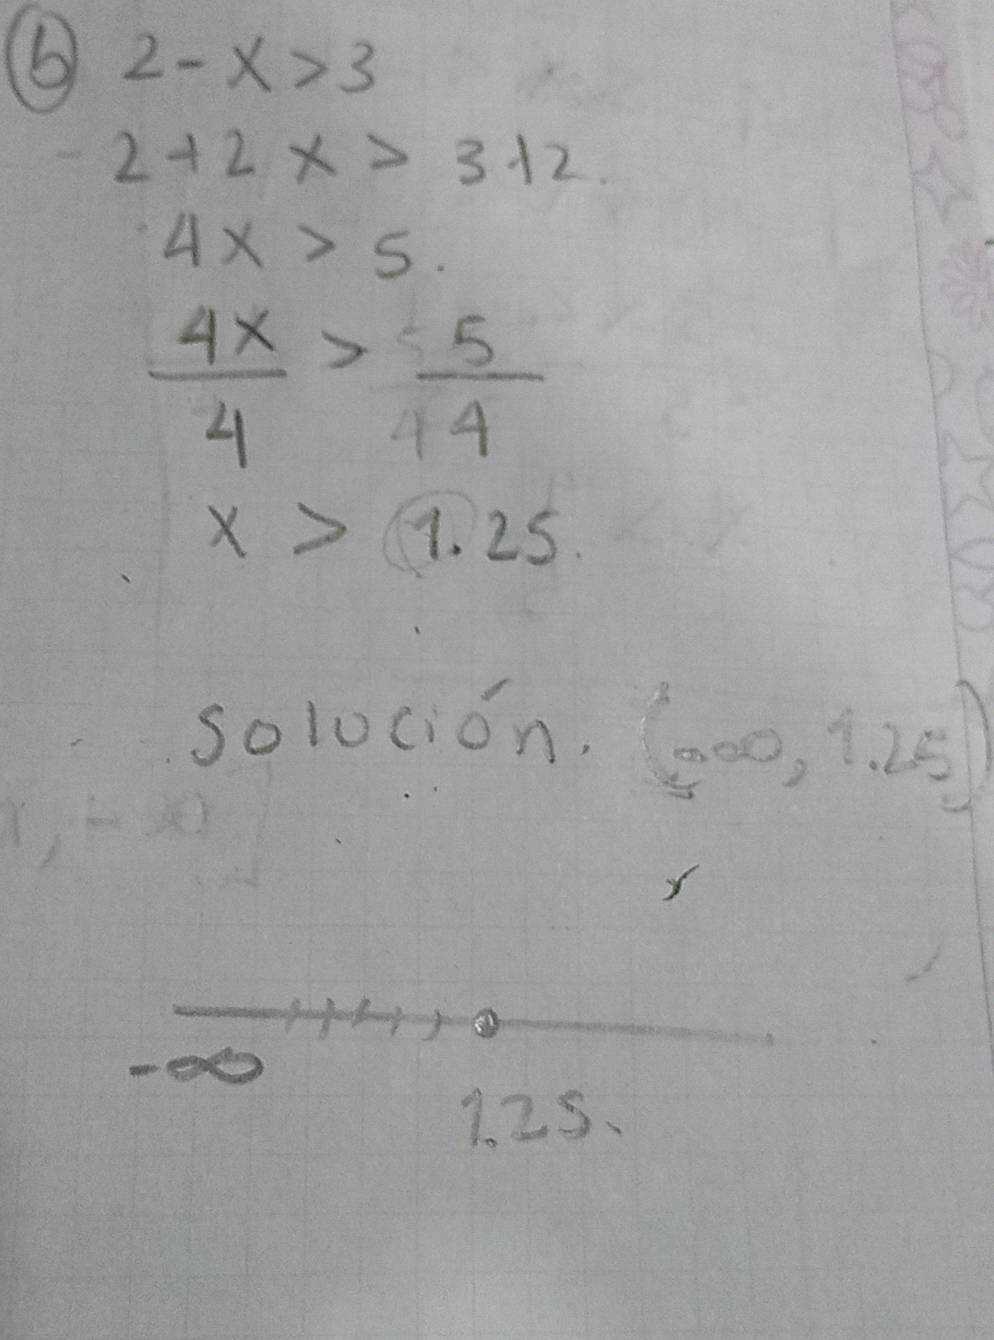 b 2 - x > 3
2 + 2 x > 3 + 2.
4x > 5.
4x > 5
4 4
x > 1.25.
solución. (-∞, 1.25)
-∞
1.25.